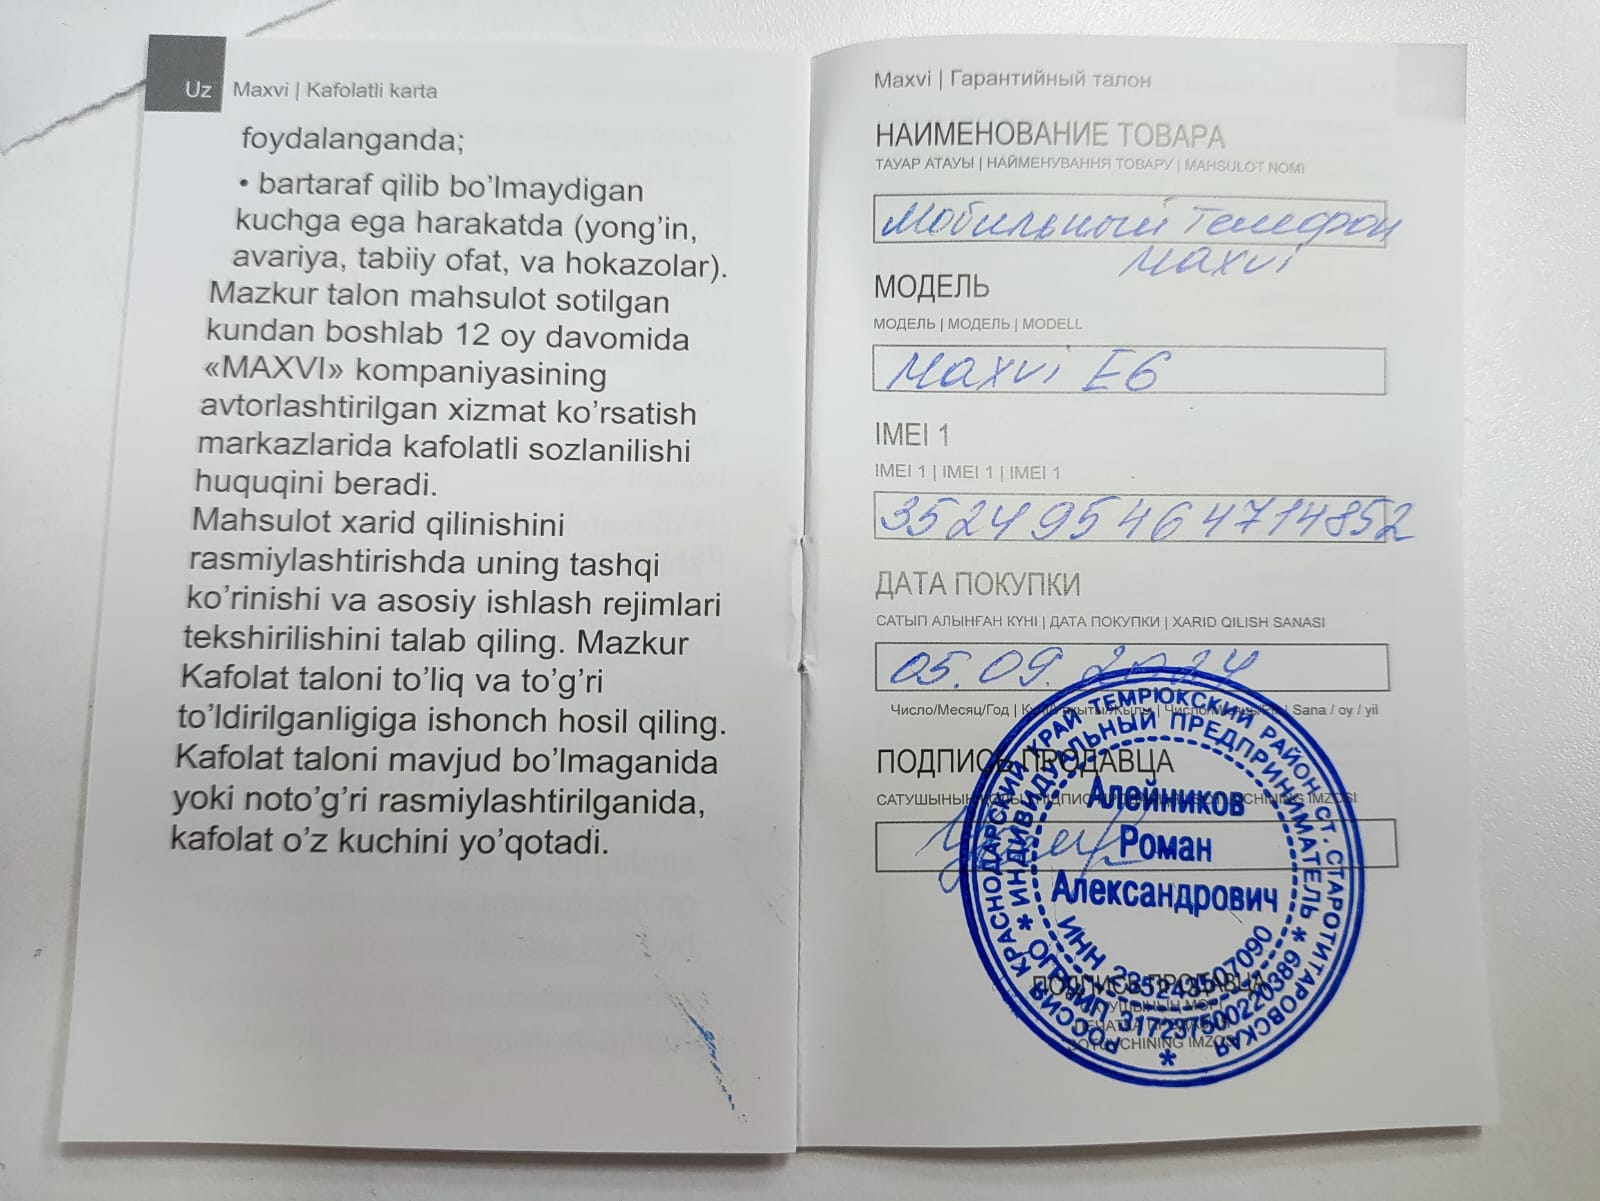 Uz Maxvi | Kafolatli karta
foydalanganda;
• bartaraf qilib bo’lmaydigan
kuchga ega harakatda (yong’in,
avariya, tabiiy ofat, va hokazolar).
Mazkur talon mahsulot sotilgan
kundan boshlab 12 oy davomida
«MAXVI» kompaniyasining
avtorlashtirilgan xizmat ko’rsatish
markazlarida kafolatli sozlanilishi
huquqini beradi.
Mahsulot xarid qilinishini
rasmiylashtirishda uning tashqi
ko’rinishi va asosiy ishlash rejimlari
tekshirilishini talab qiling. Mazkur
Kafolat taloni to’liq va to’g’ri
to’ldirilganligiga ishonch hosil qiling.
Kafolat taloni mavjud bo’lmaganida
yoki noto’g’ri rasmiylashtirilganida,
kafolat o’z kuchini yo’qotadi.
Maxvi | Гарантийный талон
НАИМЕНОВАНИЕ ТОВАРА
ТАУАР АТАУЫ | НАЙМЕНУВАННЯ ТОВАРУ | MAHSULOT NOMI
Мобильный телефон
Maxvi
МОДЕЛЬ
МОДЕЛЬ | МОДЕЛЬ | MODELL
Maxvi E6
IMEI 1
IMEI 1 | IMEI 1 | IMEI 1
352495464714852
ДАТА ПОКУПКИ
САТЫП АЛЫНҒАН КҮНІ | ДАТА ПОКУПКИ | XARID QILISH SANASI
05.09.2024
Число/Месяц/Год | Sana / oy / yil
ПОДПИСЬ ПРОДАВЦА
РОССИЯ КРАСНОДАРСКИЙ КРАЙ ТЕМРЮКСКИЙ РАЙОН СТ. СТАРОТИТАРОВСКАЯ
* ИНДИВИДУАЛЬНЫЙ ПРЕДПРИНИМАТЕЛЬ *
Алейников
Роман
Александрович
ИНН 235243507090
ОГРНИП 317237500220389
ПОДПИСЬ ПРОДАВЦА